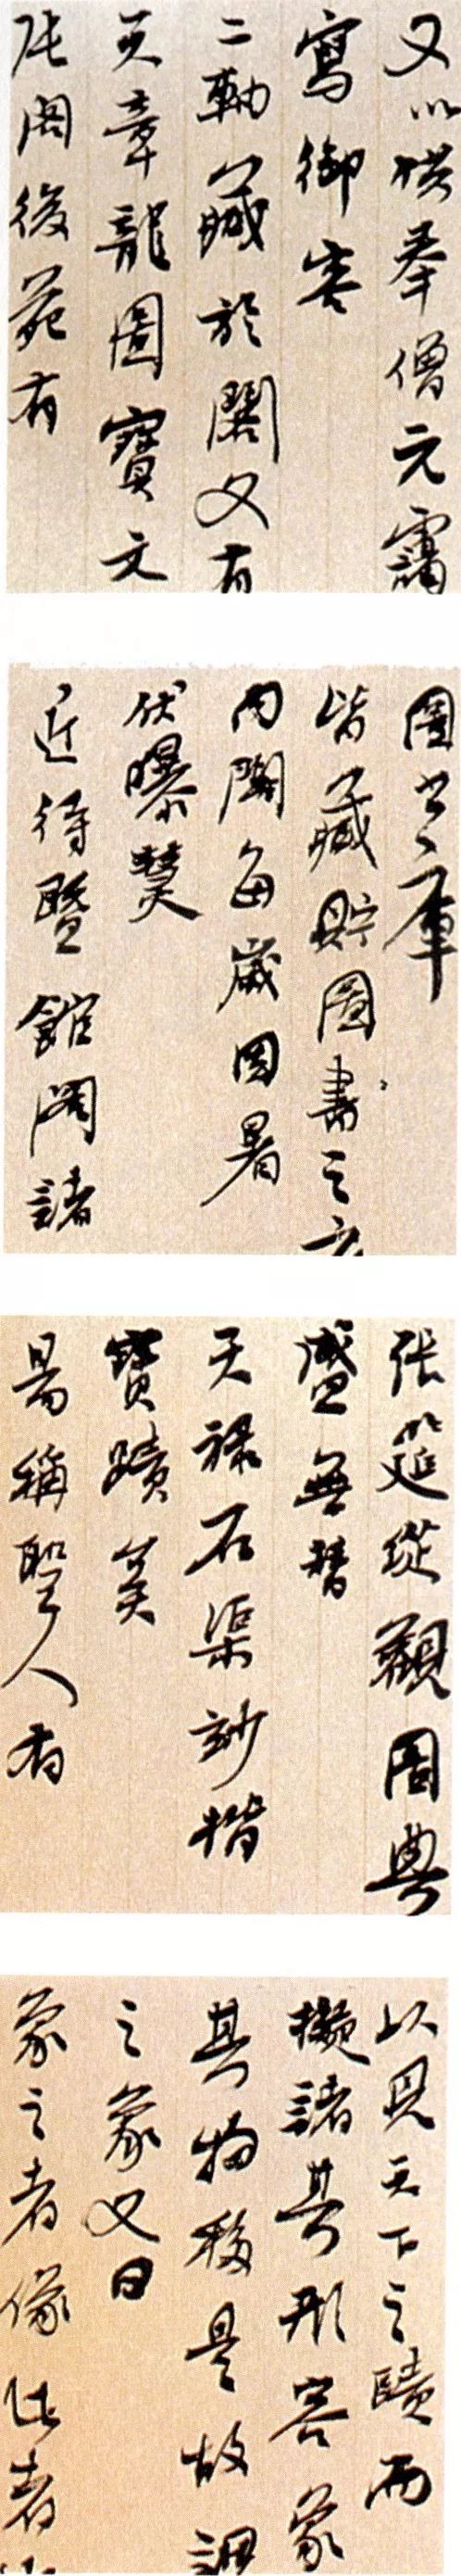 又以供奉僧元靄
寫御容
二軸藏於閣又有
天章龍圖寶文
閣後苑有
圖書庫
皆藏貯圖書之府
內閣每歲因暑
伏曝熭
近待暨館閣諸
張筵從觀圖典
盛無替
天祿石渠妙楷
寶蹟矣
易稱聖人有
以見天下之賾而
擬諸其形容象
其物移是故謂
之象又曰
象之者像此者